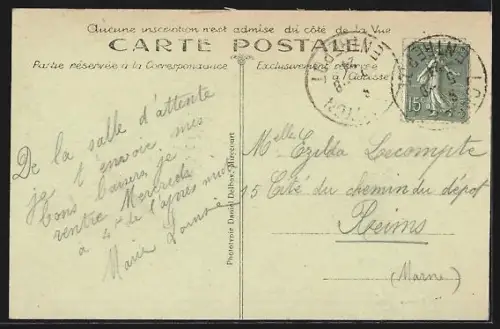 Aucune inscription n'est admise du côté de la Vue
CARTE POSTALE
Partie réservée à la Correspondance
Exclusivement
Adresse
De la salle d'attente
je t'envoie mes
bons baisers, je
rentre Mercredi
à 4h de l'après midi
Marie Louise
Phototypie Daniel Delboy, Mirecourt
15c
Melle Ezilda Lecompte
15 Cité du chemin du dépot
Reims
(Marne)